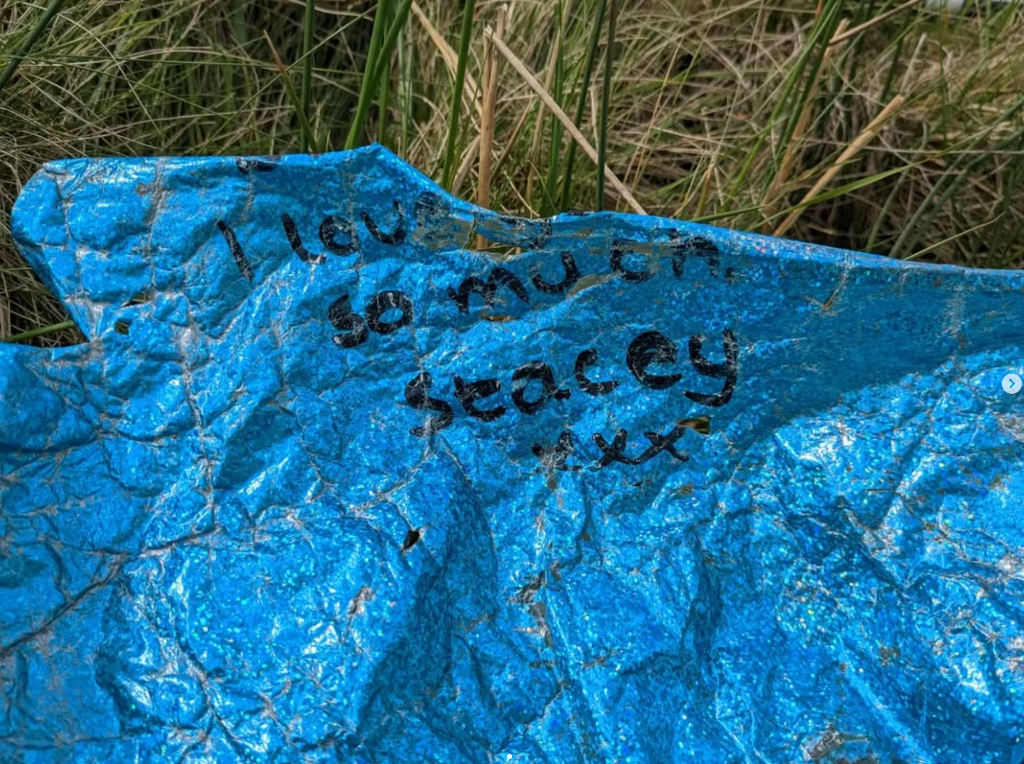 I love
so much.
Stacey
xxx